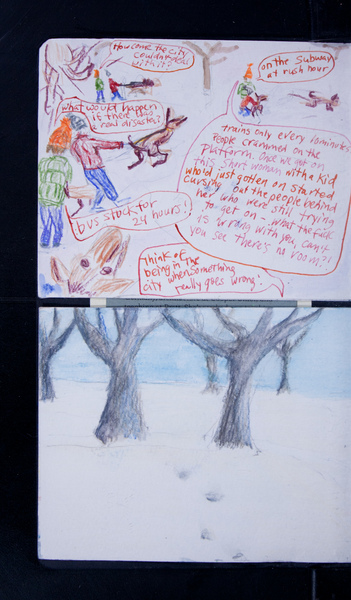 How come the city
couldn't deal
with it?
on the Subway
at rush hour
what would happen
if there was
a real disaster?
trains only every 10 minutes
People crammed on the
Platform. Once we got on
this short woman with a kid
who'd just gotten on started
cursing out the people behind
her, who were still trying
to get on - what the fuck
is wrong with you, can't
you see there's no room?!
bus stuck for
24 hours!
think of
being in the
city when something
really goes wrong!